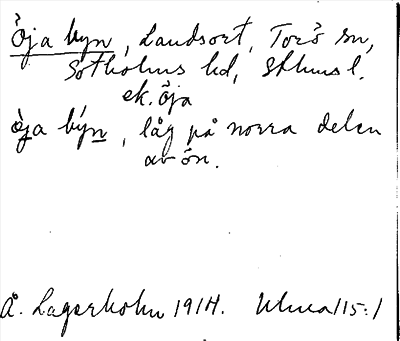 Öja byn, Landsort, Torö sn,
Sotholms hd, Sthlms l.
ek. Öja
öja býn, låg på norra delen
av ön.
Å. Lagerholm 1914.